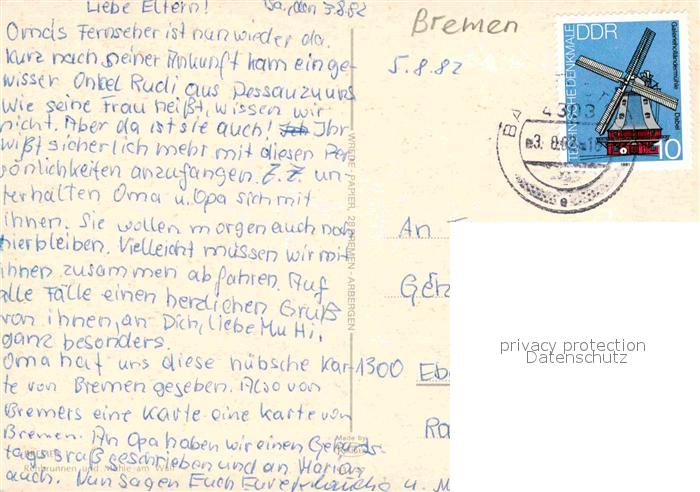 Liebe Eltern!
Ba, den 3.8.82
Omas Fernseher ist nun wieder da.
Kurz nach seiner Ankunft kam ein ge-
wisser Onkel Rudi aus Dessau zu uns
Wie seine Frau heißt, wissen wir
nicht. Aber da ist sie auch! Ihr
wißt sicherlich mehr mit diesen Per
sönlichkeiten anzufangen. Z.Z. un-
terhalten Oma u. Opa sich mit
ihnen. Sie wollen morgen auch noch
hierbleiben. Vielleicht müssen wir mit
ihnen zusammen abfahren. Auf
alle Fälle einen herzlichen Gruß
von ihnen, an Dich, liebe Mu Hi,
ganz besonders.
Oma hat uns diese hübsche Kar-
te von Bremen gegeben. Also von
Bremers eine Karte eine Karte von
Bremen. An Opa haben wir einen
geschrieben und an
auch. Nun sagen Euch Eure u. M
Bremen
5.8.82
DDR
TECHNISCHE DENKMALE
Galerieholländermühle Dabel
1981
10
BA
4303
-3. 8.82-
e
WREDE-PAPIER, 28 BREMEN-ARBERGEN
An
1300 Ebe
Made by
und Mühle am Wall
privacy protection
Datenschutz